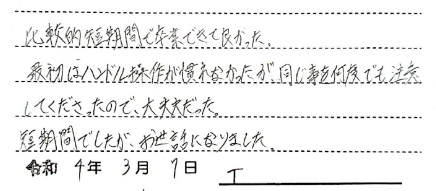 比較的短期間で卒業できて良かった。
最初はハンドル操作が慣れなかったが同じ事を何度でも注意
してくださったので、大丈夫だった。
短期間でしたが、お世話になりました。
令和 4年 3月 7日 T